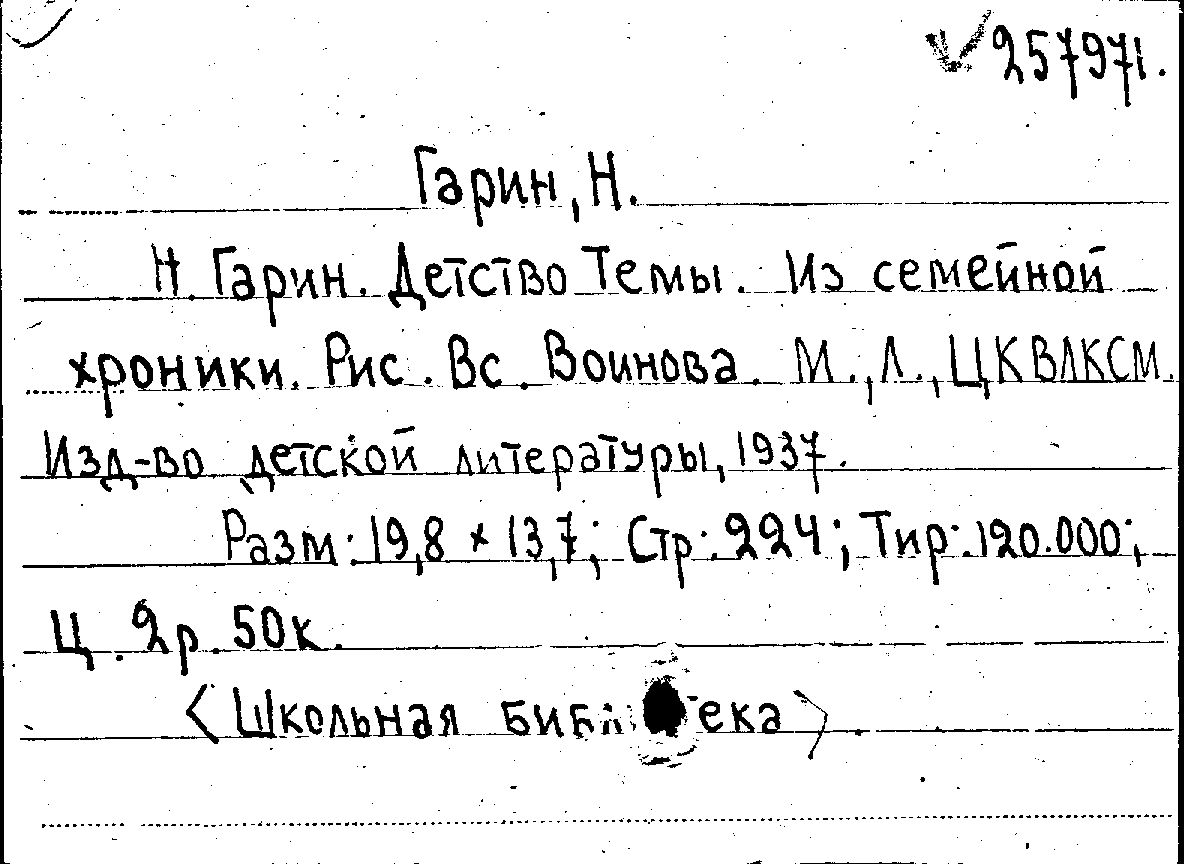 257971.
Гарин, Н.
Н. Гарин. Детство Темы. Из семейной
хроники. Рис. Вс. Воинова. М., Л., ЦК ВЛКСМ.
Изд-во детской литературы, 1937.
Разм: 19,8 × 13,7; Стр: 224; Тир: 120.000;
Ц. 2р. 50к.
<Школьная библиотека>.